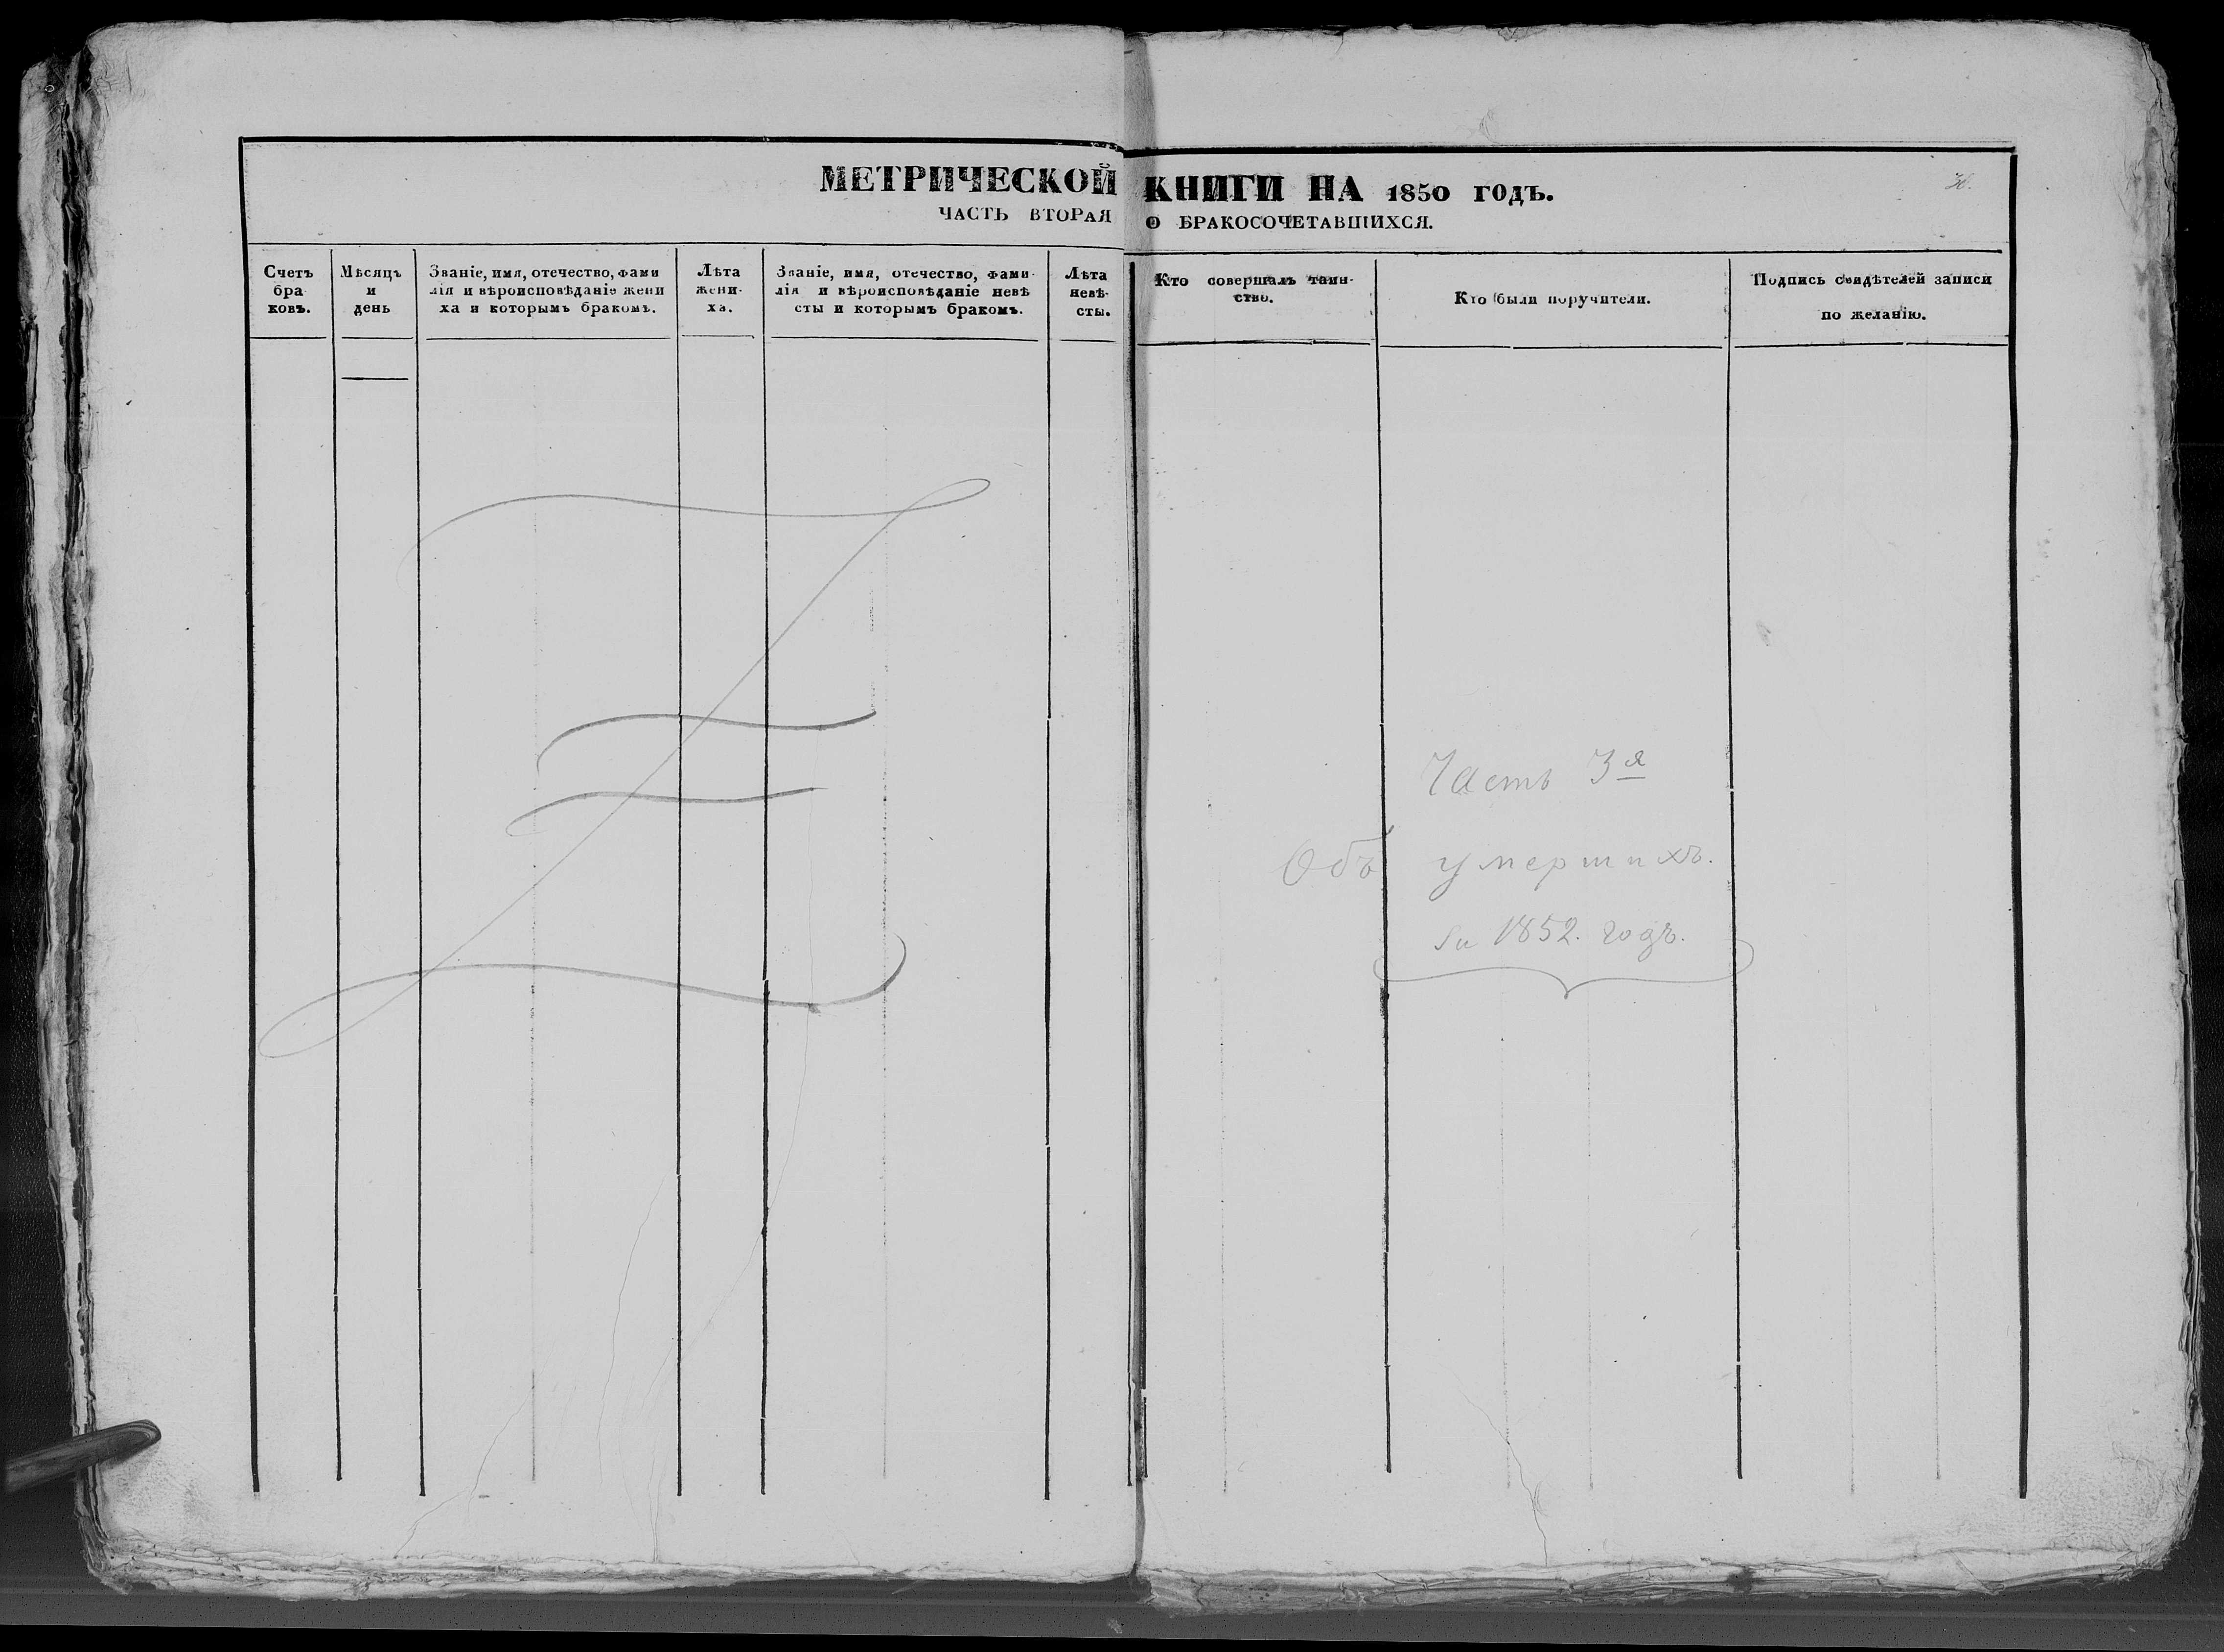 МЕТРИЧЕСКОЙ КНИГИ НА 1850 ГОДЪ.
ЧАСТЬ ВТОРАЯ О БРАКОСОЧЕТАВШИХСЯ.
Счетъ
бра
ковъ.
Мѣсяцъ
и
день
Званіе, имя, отечество, фами
лія и вѣроисповѣданіе жени
ха и которымъ бракомъ.
Лѣта
жени-
ха.
Званіе, имя, отечество, фами-
лія и вѣроисповѣданіе невѣ
сты и которымъ бракомъ.
Лѣта
невѣ-
сты.
Кто совершалъ таин-
ство.
Кто были поручители.
Подпись свидѣтелей записи
по желанію.
Часть 3я
Объ умершихъ.
1852. годъ.